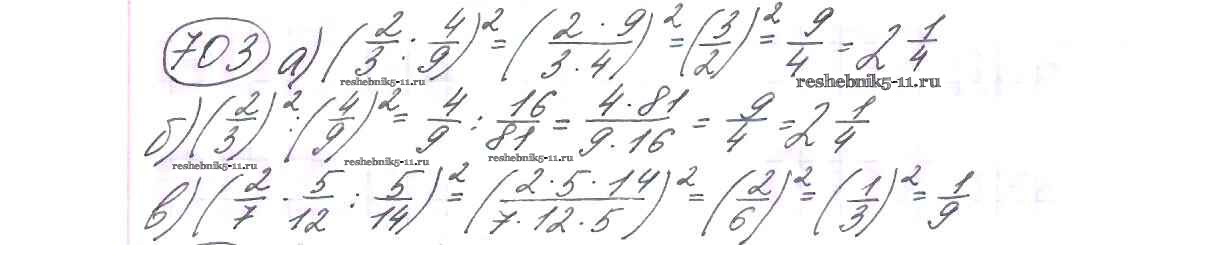 703 а) (2/3 : 4/9)² = (2 · 9 / 3 · 4)² = (3/2)² = 9/4 = 2 1/4
reshebnik5-11.ru reshebnik5-11.ru
б) (2/3)² : (4/9)² = 4/9 : 16/81 = 4 · 81 / 9 · 16 = 9/4 = 2 1/4
reshebnik5-11.ru reshebnik5-11.ru reshebnik5-11.ru
в) (2/7 · 5/12 : 5/14)² = (2 · 5 · 14 / 7 · 12 · 5)² = (2/6)² = (1/3)² = 1/9